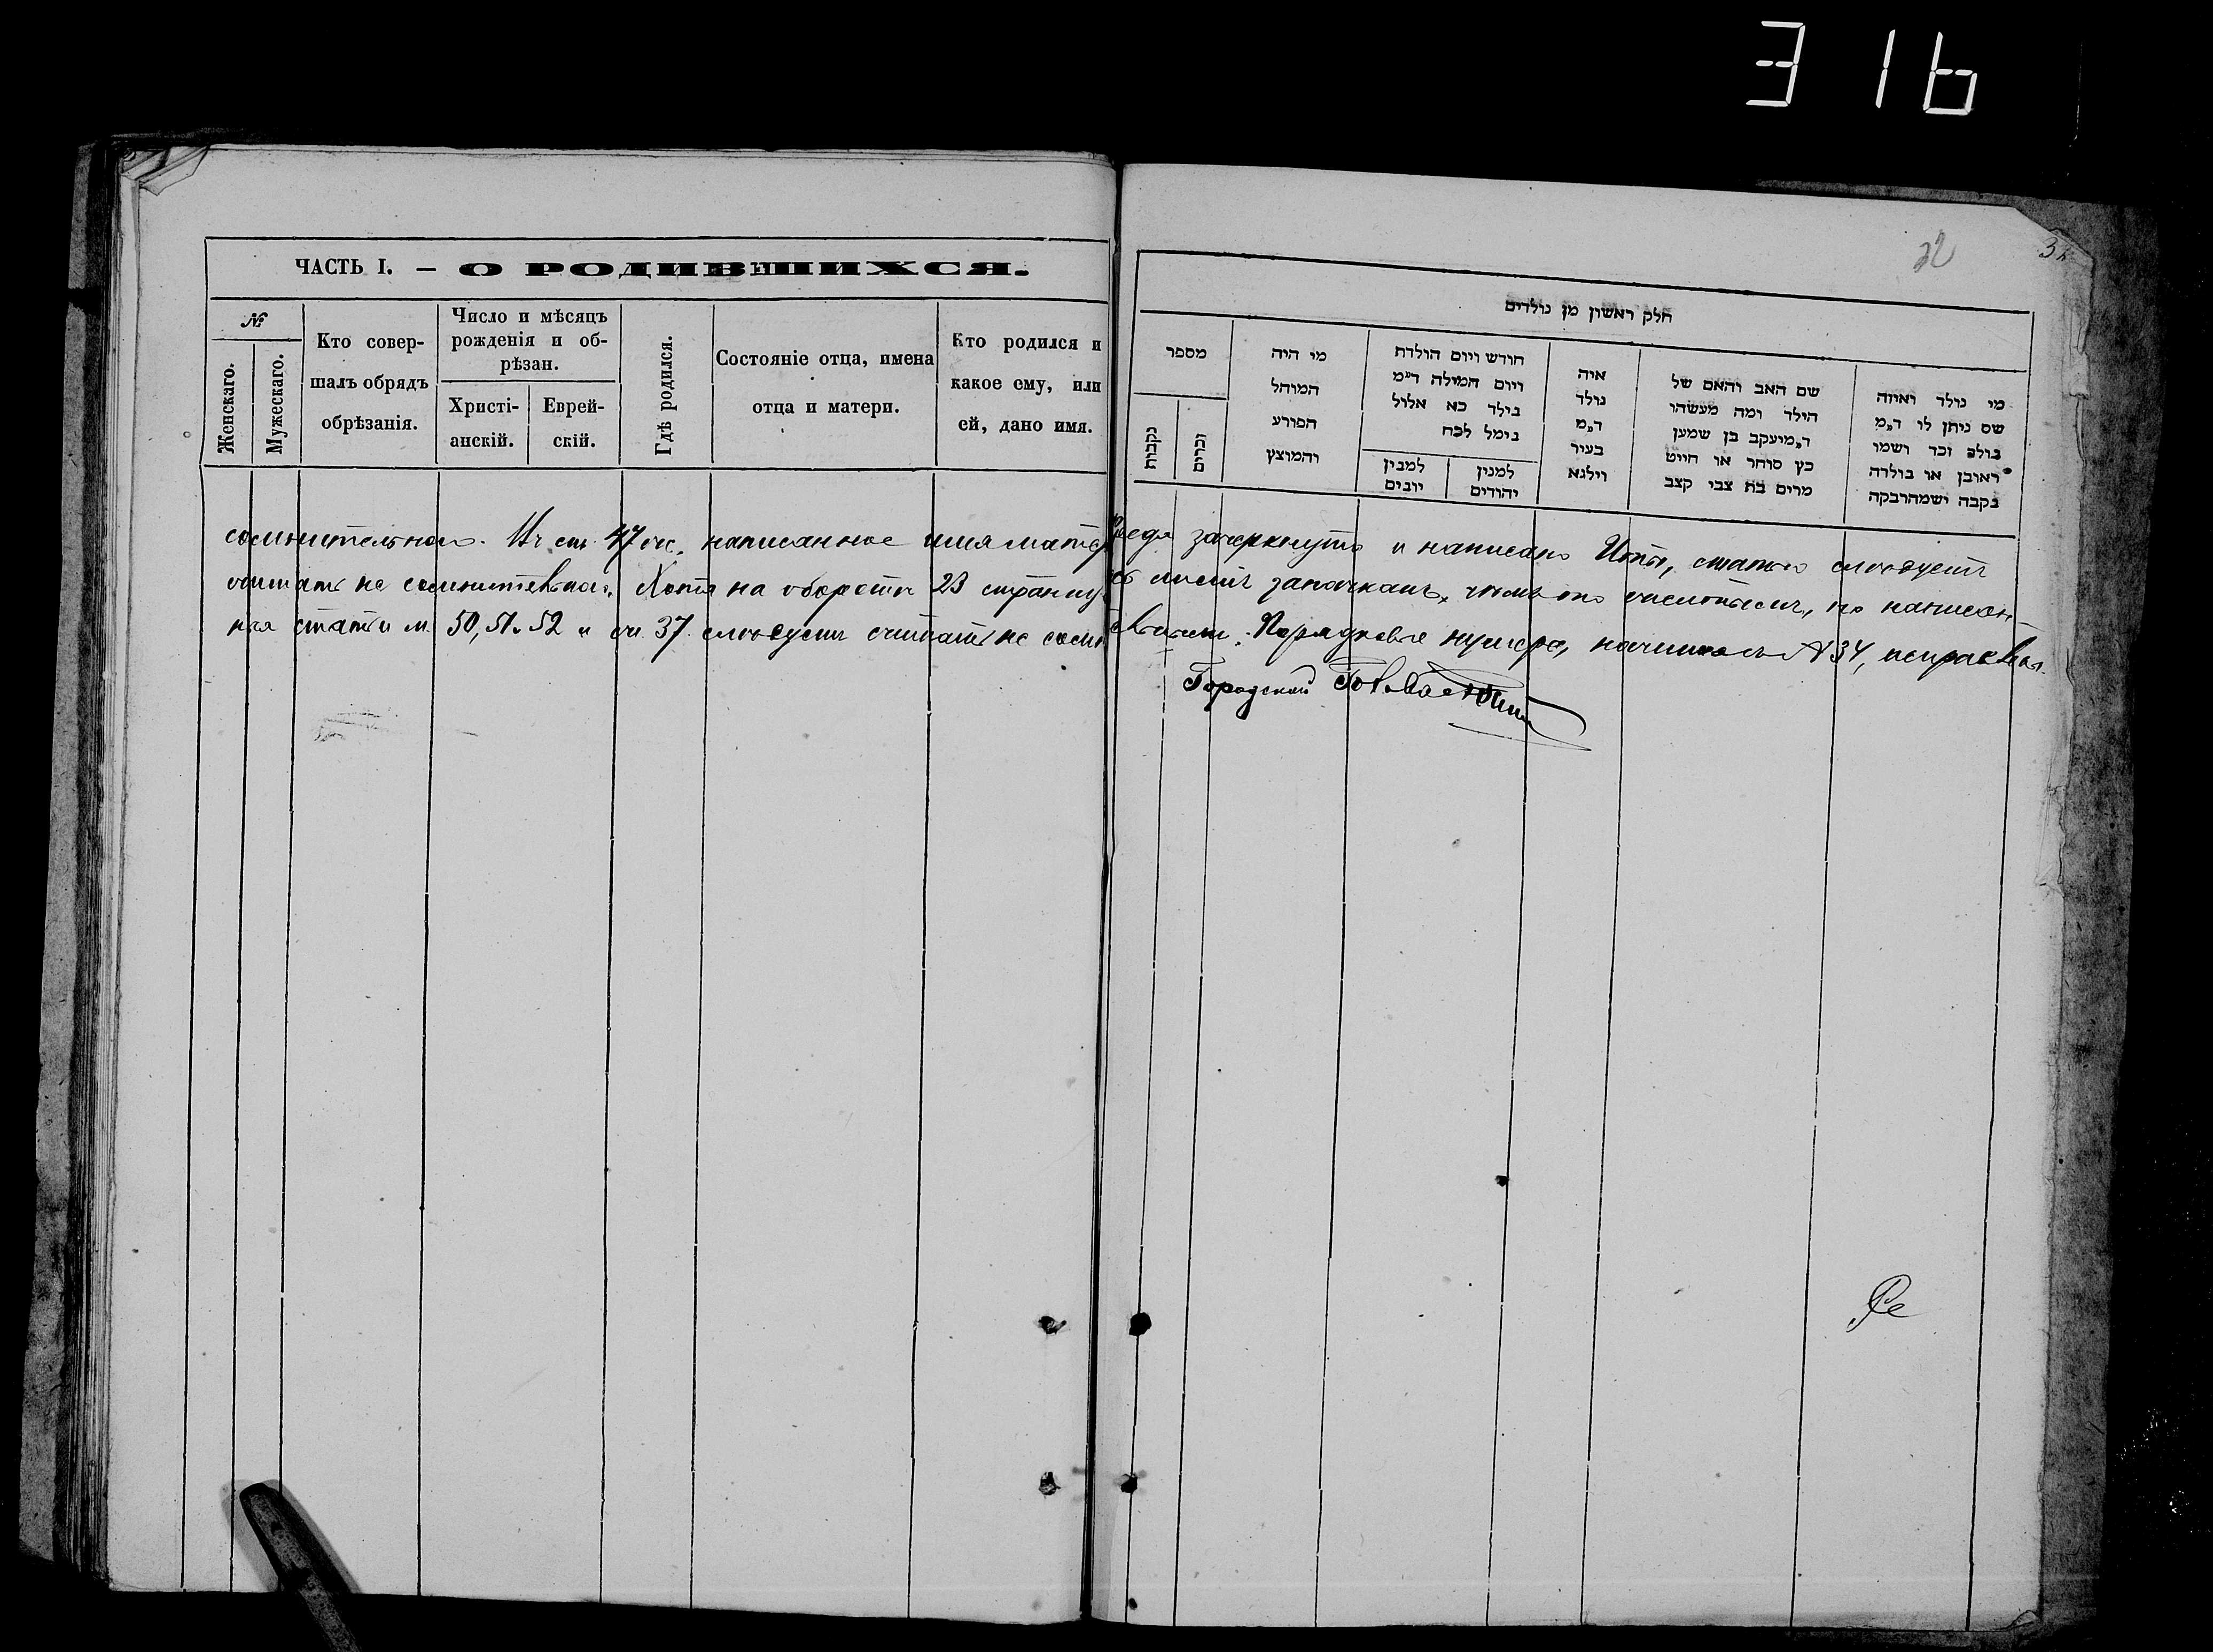 316
32
ЧАСТЬ I. – О РОДИВШИХСЯ.
№
Женскаго.
Мужескаго.
Кто совер-
шалъ обрядъ
обрѣзанія.
Число и мѣсяцъ
рожденія и об-
рѣзан.
Христі-
анскій.
Еврей-
скій.
Гдѣ родился.
Состояніе отца, имена
отца и матери.
Кто родился и
какое ему, или
ей, дано имя.
חלק ראשון מן נולדים
מספר
נקבות
זכרים
מי היה
המוהל
הפורע
והמוצץ
חודש ויום הולדת
ויום המילה ד״מ
בילד כא אלול
בימל לכח
למבין
יובים
למנין
יהודים
איה
נולד
ד״מ
בעיר
וילנא
שם האב והאם של
הילד ומה מעשהו
ד״מיעקב בן שמען
כץ סוחר או חייט
מרים בת צבי קצב
מי נולד ואיזה
שם ניתן לו ד״מ
בולד זכר ושמו
ראובן או בולדה
נקבה ושמהרבקה
сомнительною. 47 написанное имя матери зачеркнуто и написано статью слѣдуетъ
считать не сомнительною. Хотя на оборотѣ 23 страницы листъ запачканъ, но написан-
ныя статьи м. 50, 51, 52 и 37 слѣдуетъ считать не Порядковые нумера, начиная съ № 34,
Городской